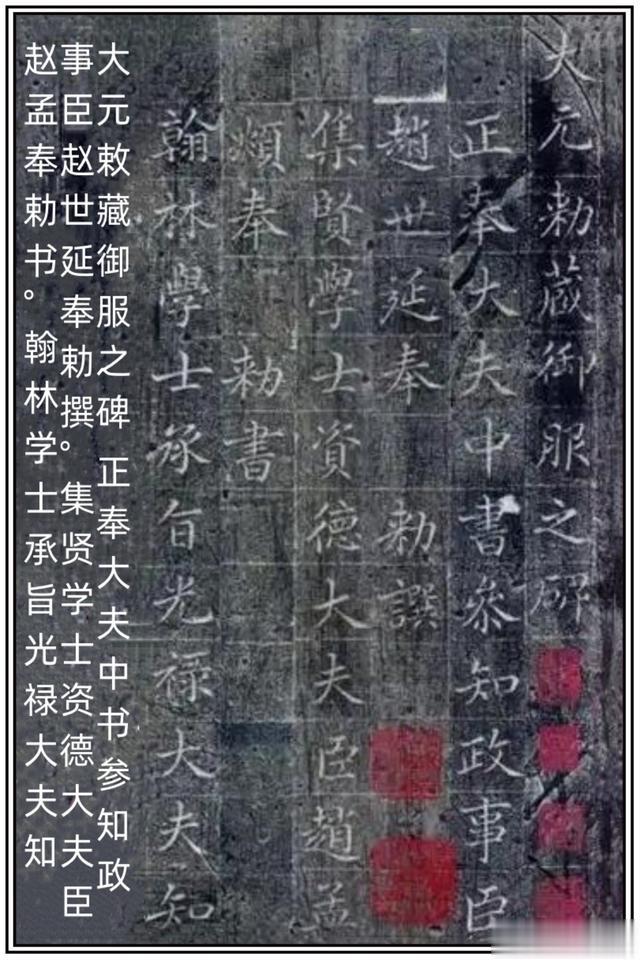 大元勅藏御服之碑
正奉大夫中書叅知政事臣
趙世延奉 勅譔
集賢學士資德大夫臣趙孟
頫奉 勅書
翰林學士承旨光祿大夫知
大元敕藏御服之碑 正奉大夫中书参知政
事臣赵世延奉勅撰。集贤学士资德大夫臣
赵孟奉勅书。翰林学士承旨光禄大夫知